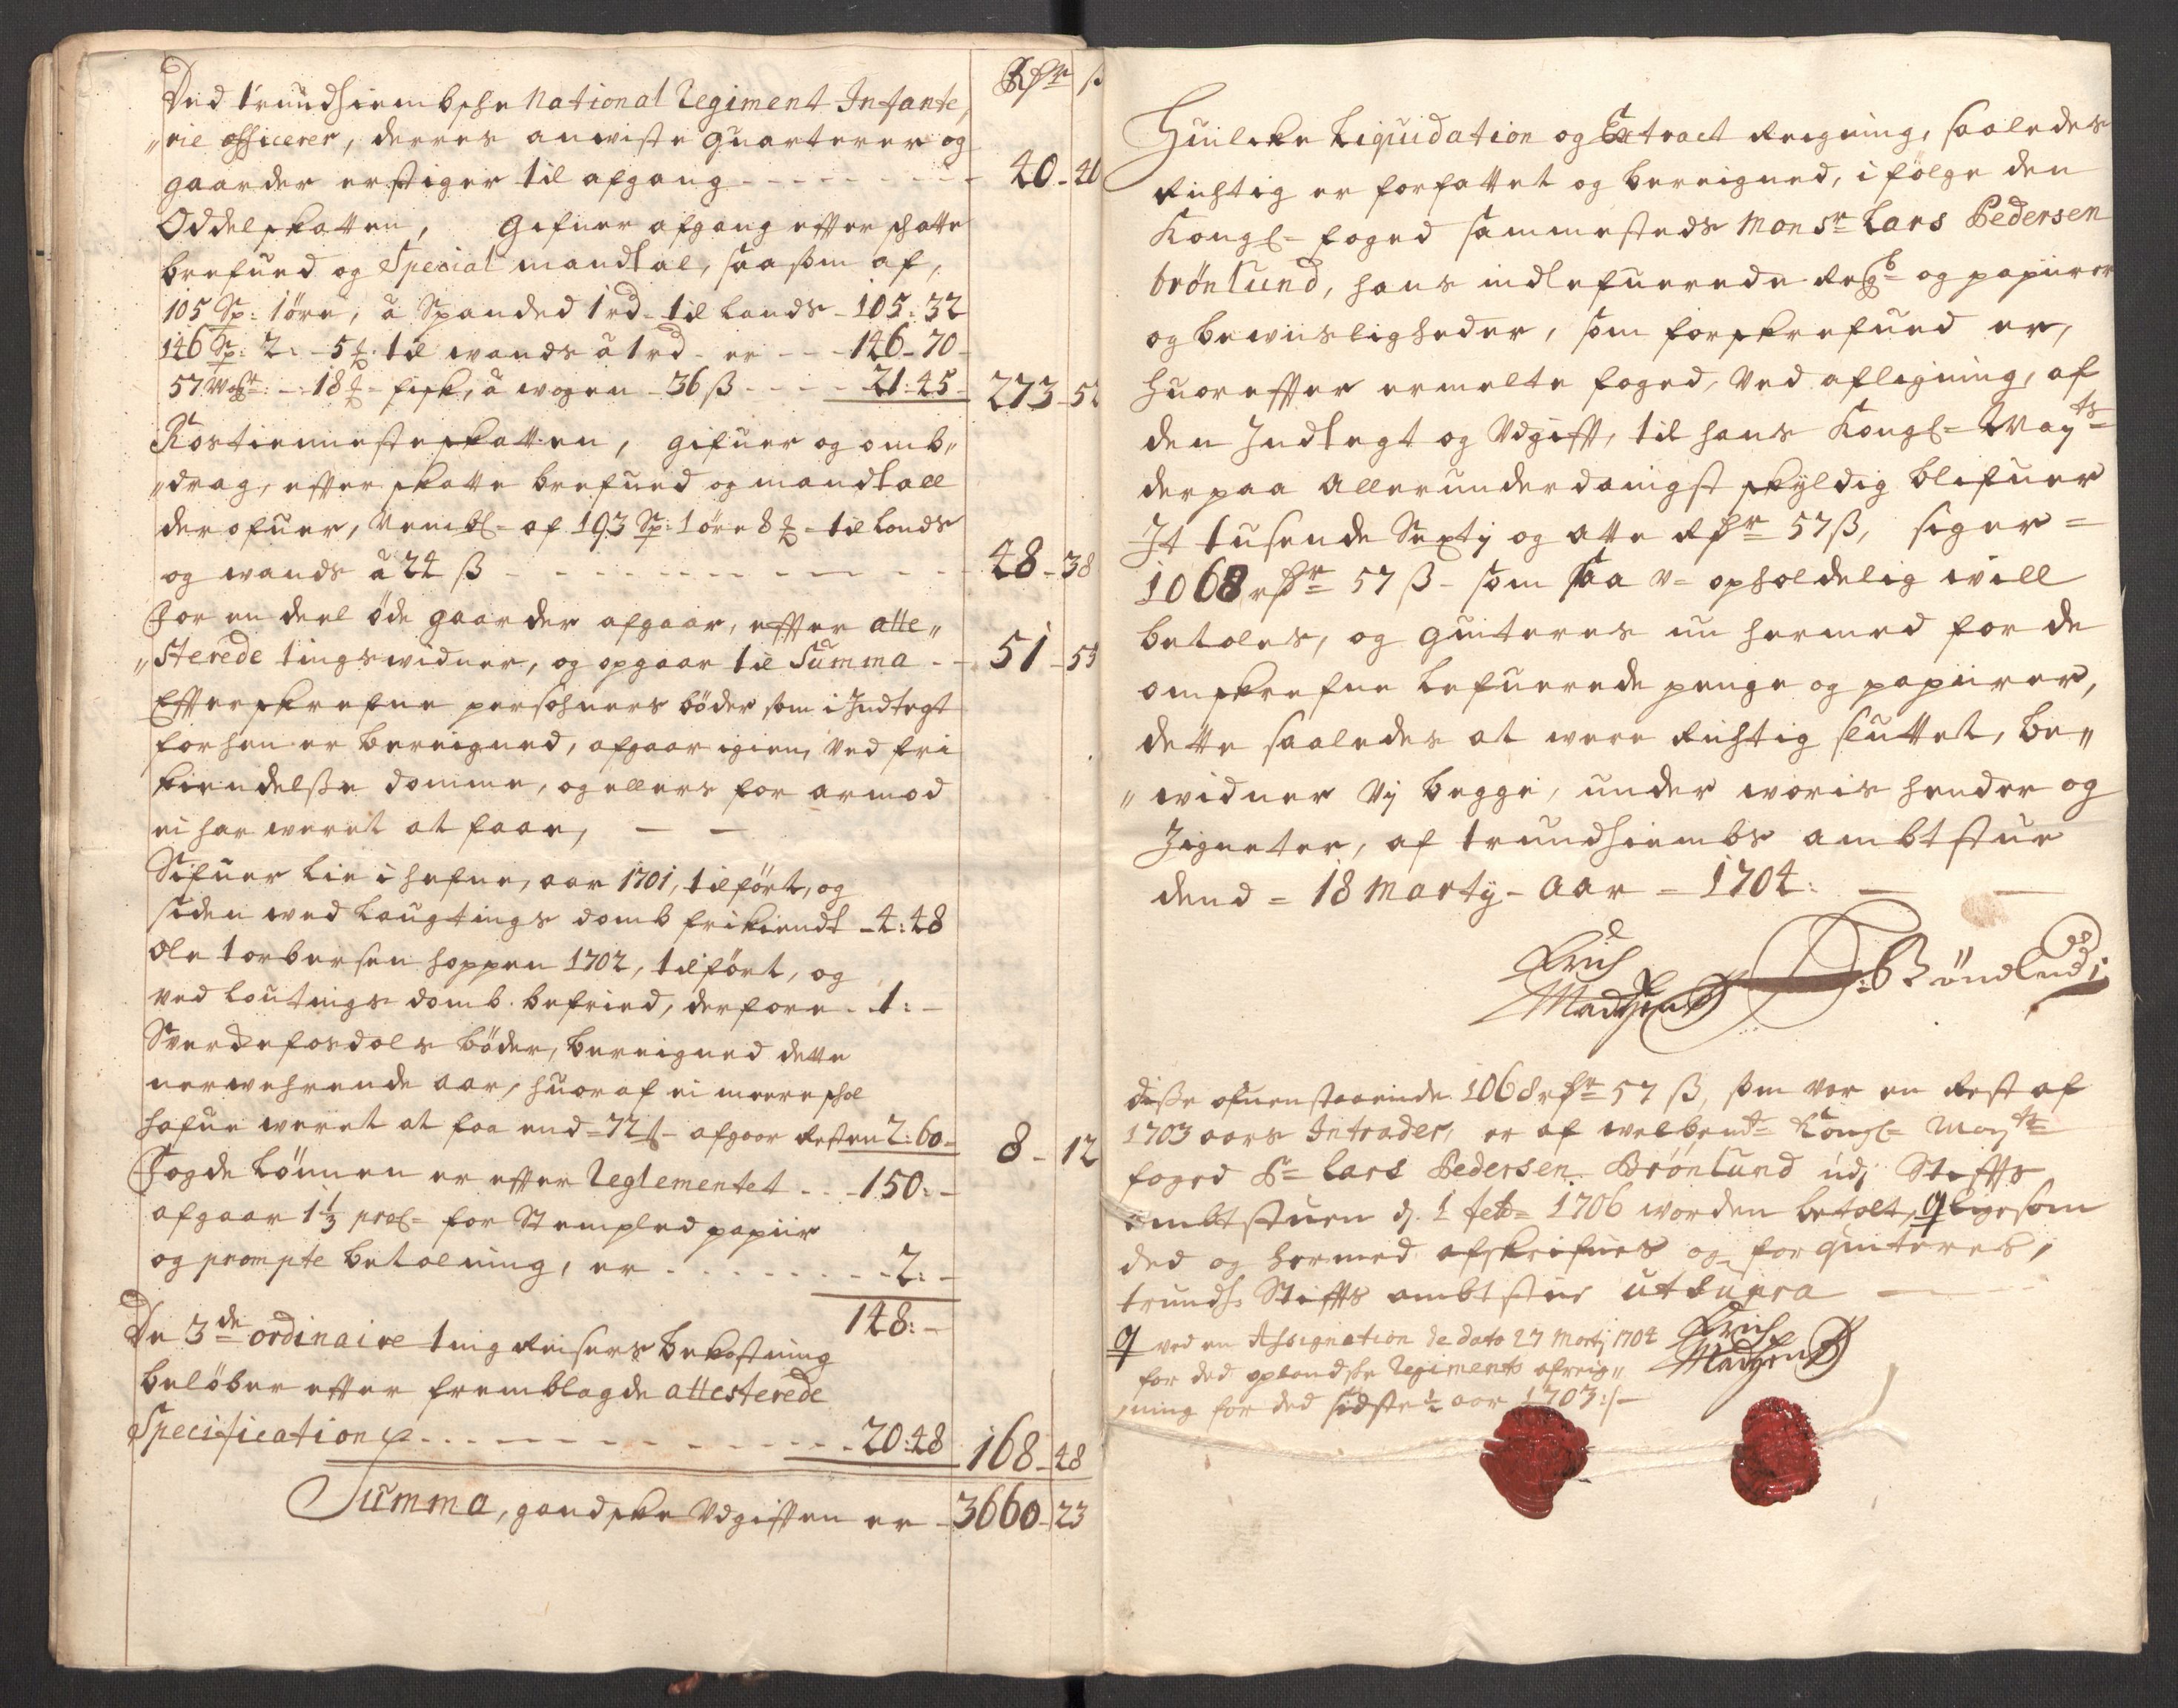 Rdr ß
Ded trundhiembsche National Regiment Infante,,
,,rie officerer, derres anviste quarterer og
gaarder erstiger til afgang - - - 40 - 40
Oddelskatten, gifuer afgang efter skatte
brefued og Special mandtal, saasom af,
105 Sp: 1 öre, â Spanded 1 rd - til lands - 105: 32
146 Sp: 2: - 5 til wands â 1 rd - er - - 146 - 70 -
57 Wog: - 18 - fisk, â wogen - 36 ß - - - 21: 45 - 273 - 51
Rostienneste skatten, gifuer og omb,,
,,drag, efter skatte brefued og mandtall
derofuer, af 193 Sp: 1 öre 8 - til lands
og wands â 24 ß - - - 48 - 38
For en deel öde gaarder afgaar, effter atte,,
,,sterede tingswidner, og opgaar til Summa - - 51 - 55
Effterskrefne persohners böder som i Indtegt
forhen er bereigned, afgaar igien, ved fri
kiendelsse domme, og ellers for armod
ei har weret at faae, — —
Sifuer Lie i hefne, aar 1701, tilfört, og
siden wed laugtings domb frikiendt - 4: 48
Ole torbersen hoppen 1702, tilfört, og
ved loutings domb. befried, derfore - 1: -
Bereigned dette
nerwehrende aar, huoraf ei meere schal
hafue weret at faa end - 72 ß - afgaar Resten 2: 60 - 8 - 12
Fogde Lönnen er efter Reglementet - - - 150: -
afgaar 1 1/3 proc= for Stempled papiir
og prompte betalning, er - - - 2: -
148: -
De 3de ordinaire ting Reisers bekostning
belöber efter fremblagde attesterede
Specification - - - 20: 48 168 - 48
Summa, gandske Udgiften er - 3660 - 23
Huilcke Liquidation og Extract Reigning, saaledes
Richtig er forfattet og bereigned, i fölge den
Kongl= foged sammesteds Monsr Lars Pedersen
brönlund, hans indlefuerede Regb= og papiirer
og bewiisligheder, som forskrefued er,
huoreffter ermelte foged, Ved afligning, af
den Indtegt og Udgifft, til hans Kongl= Mayts=
derpaa allerunderdanigst skyldig blifuer
It tusende Sexty og otte Rdr 57 ß, siger =
1068 rdr 57 ß - som saa v= opholdelig will
betales, og quiteres nu hermed for de
omskrefne lefuerede penge og papiirer,
dette saaledes at were Richtig sluttet, be,,
,,widner Vy begge, under woris hender og
Zigneter, af trundhiembs ambtstue
dend = 18 Marty - Aar = 1704:
Erich
Madhsen
Bröndlund:
disse ofuenstaaende 1068 rdr 57 ß, som var en Rest af
1703 aars Intrader, er af welbemt= Kongl= Mayts=
foged Sr= Lars Pedersen Brönlund udj Stiffts
ambtstuen d. 1 feb= 1706 worden betalt, q ligesom
ded og hermed afskrifues og forquiteres,
trundh: Stiffts ambtstue ut supra
q ved en Assignation de dato 27 Martj 1704
for ded oplandske Regiments afreig,,
,,ning for ded sidste 1/2 aar 1703:/-
Erich
Madhsen